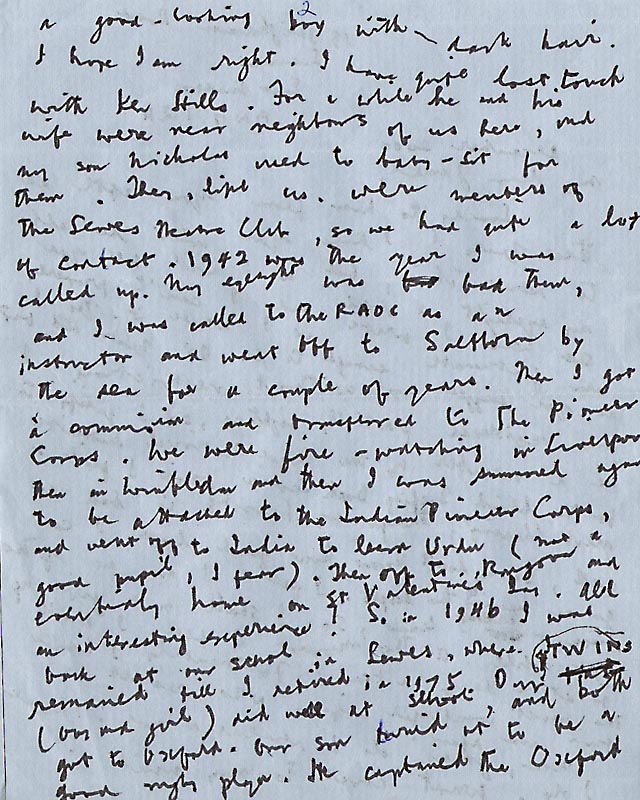 2
a good-looking boy with dark hair.
I hope I am right. I have quite lost touch
with Ken Stills. For a while he and his
wife were near neighbours of us here, and
my son Nicholas used to baby-sit for
them. They, like us, were members of
the Lewes Theatre Club, so we had quite a lot
of contact. 1942 was the year I was
called up. My eyesight was bad then,
and I was called to the RAOC as an
instructor and went off to Saltburn by
the sea for a couple of years. Then I got
a commission and transferred to the Pioneer
Corps. We were fire-watching in Liverpool
then in Wimbledon and then I was summoned again
to be attached to the Indian Pioneer Corps,
and went off to India to learn Urdu (not a
good pupil, I fear). Then off to Rangoon and
eventually home on St Valentine's Day. All
an interesting experience! So in 1946 I was
back at our school in Lewes, where I
remained till I retired in 1975. Our TWINS
(boy and girl) did well at school, and both
got to Oxford. Our son turned out to be a
good rugby player. He captained the Oxford